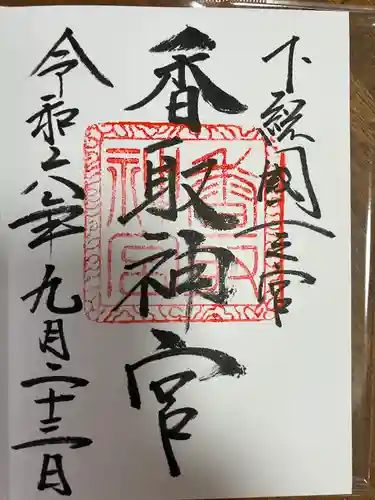 下総国一之宮
香取神宮
香取
神宮
令和六年九月二十三日